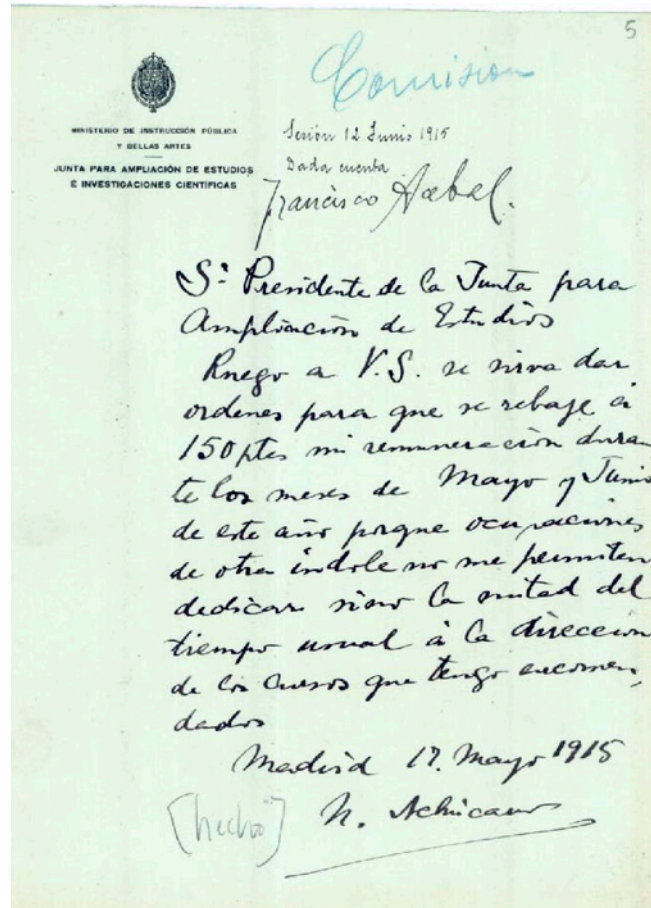 5
Comision
MINISTERIO DE INSTRUCCIÓN PÚBLICA
Y BELLAS ARTES
JUNTA PARA AMPLIACIÓN DE ESTUDIOS
É INVESTIGACIONES CIENTÍFICAS
Sesión 12 Junio 1915
Dada cuenta
Francisco Acebal.
Sr Presidente de la Junta para
Ampliación de Estudios
Ruego a V.S. se sirva dar
ordenes para que se rebaje á
150 ptes mi remuneración duran
te los meses de Mayo y Junio
de este año porque ocupaciones
de otra índole no me permiten
dedicar sino la mitad del
tiempo usual á la direccion
de los cursos que tengo encomen,
dados
Madrid 17. Mayo 1915
[hecho]
N. Achúcarro